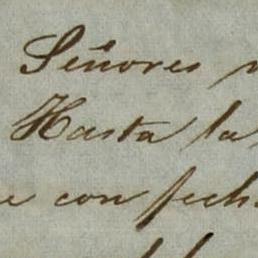 Señores
Hasta la
con fech